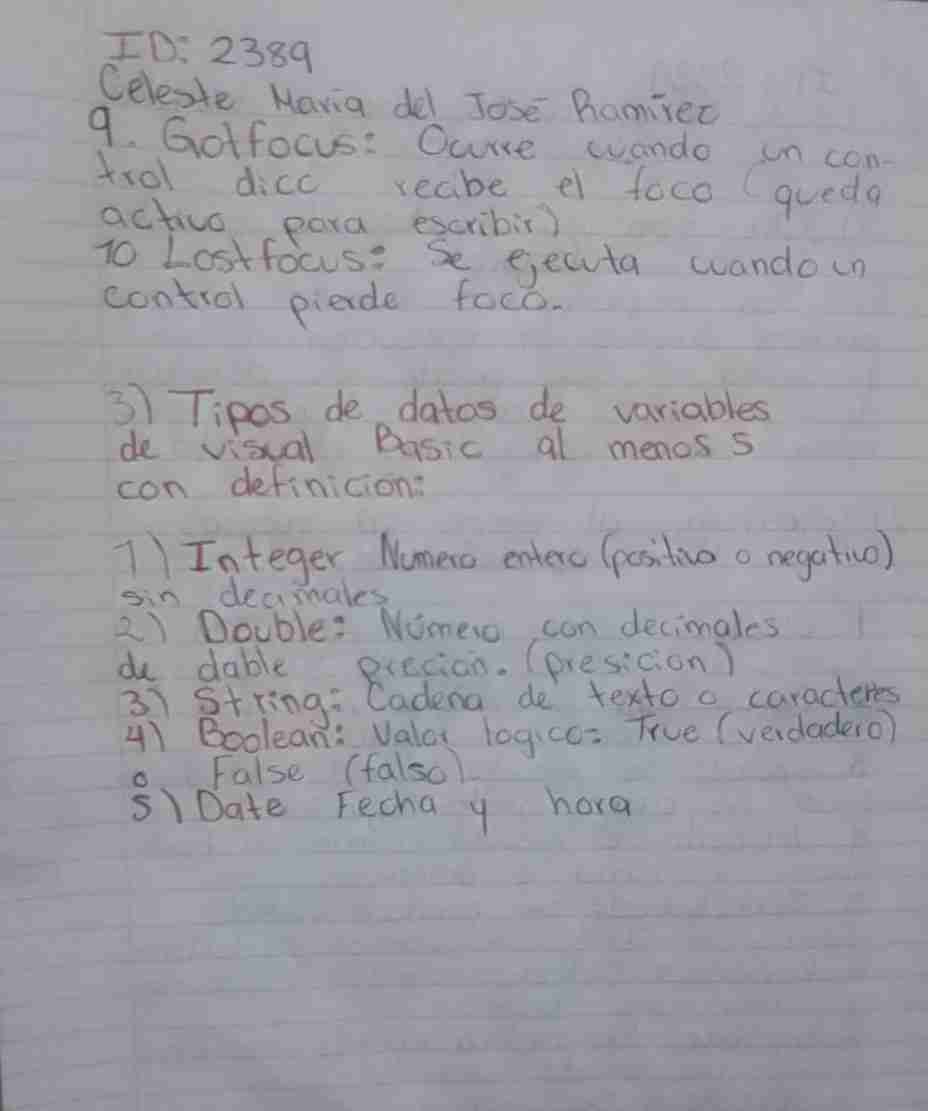 ID: 2389
Celeste Maria del José Ramirez
9. Gotfocus: Ocurre cuando un con-
trol dicc recibe el foco (queda
activo para escribir)
10 Lostfocus: Se ejecuta cuando un
control pierde foco.
3) Tipos de datos de variables
de visual Basic al menos 5
con definicion:
1) Integer Numero entero (positivo o negativo)
sin decimales
2) Double: Número con decimales
de dable precion. (presicion)
3) String: Cadena de texto o caracteres
4) Boolean: Valor logico: True (verdadero)
o False (falso)
5) Date Fecha y hora